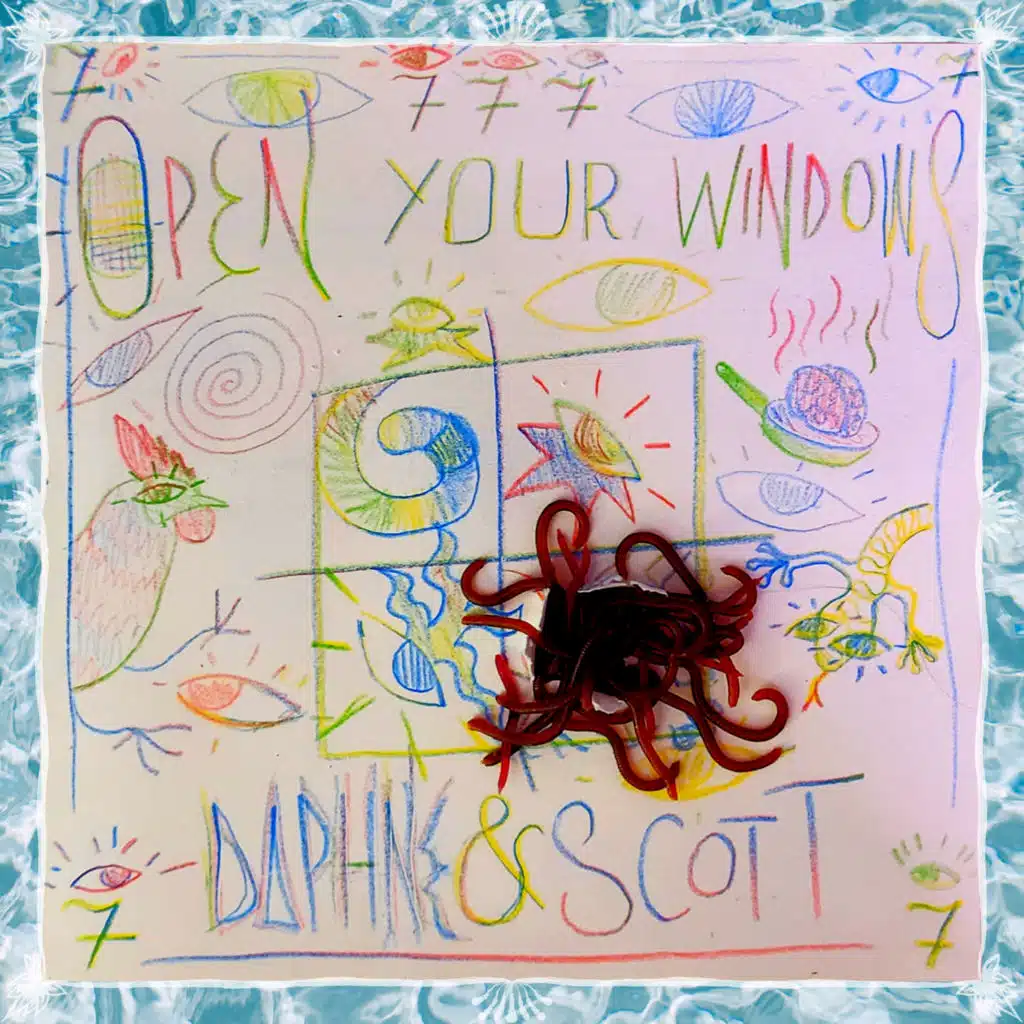 7 7 7 7 7
OPEN YOUR WINDOWS
DAPHNE & SCOTT
7 7